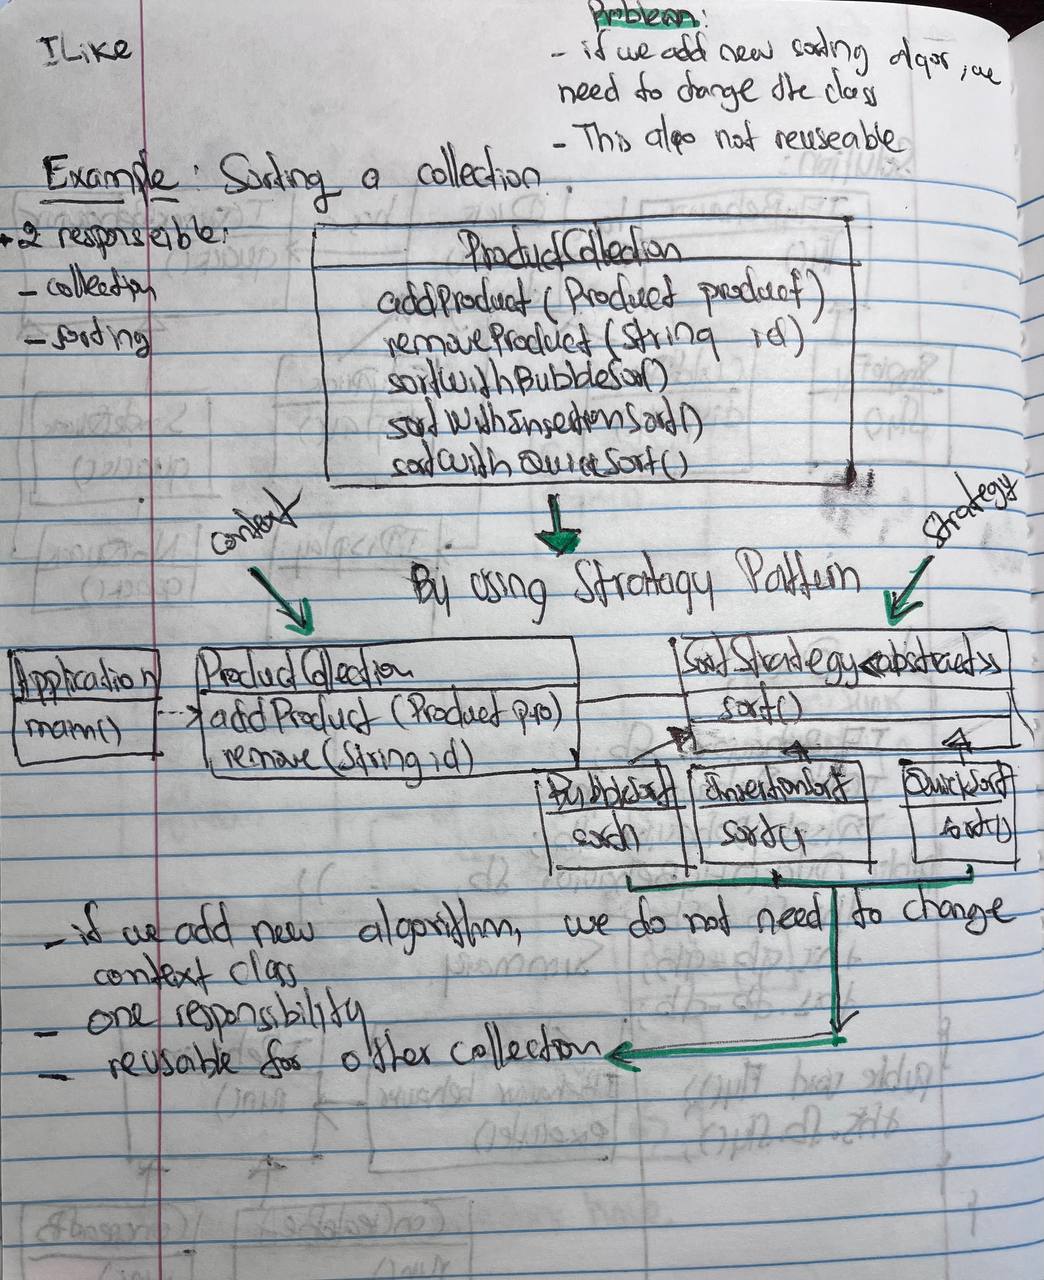 Problem:
ILike
- if we add new sorting algor, we
need to change the class
- This also not reuseable
Example: Sorting a collection.
2 responseible:
- collection
- sorting
ProductCollection
addProduct (Product product)
removeProduct (String id)
sortWithBubbleSort()
sortWithInsertionSort()
sortWithQuickSort()
context
Strategy
By Using Stratagy Pattern
Application
main()
ProductCollection
addProduct (Product pro)
remove (String id)
SortStrategy <abstract>>
sort()
BubbleSort
InsertionSort
sort()
QuickSort
sort()
- if we add new algorithm, we do not need to change
context class
- one responsibility
- reusable for other collection